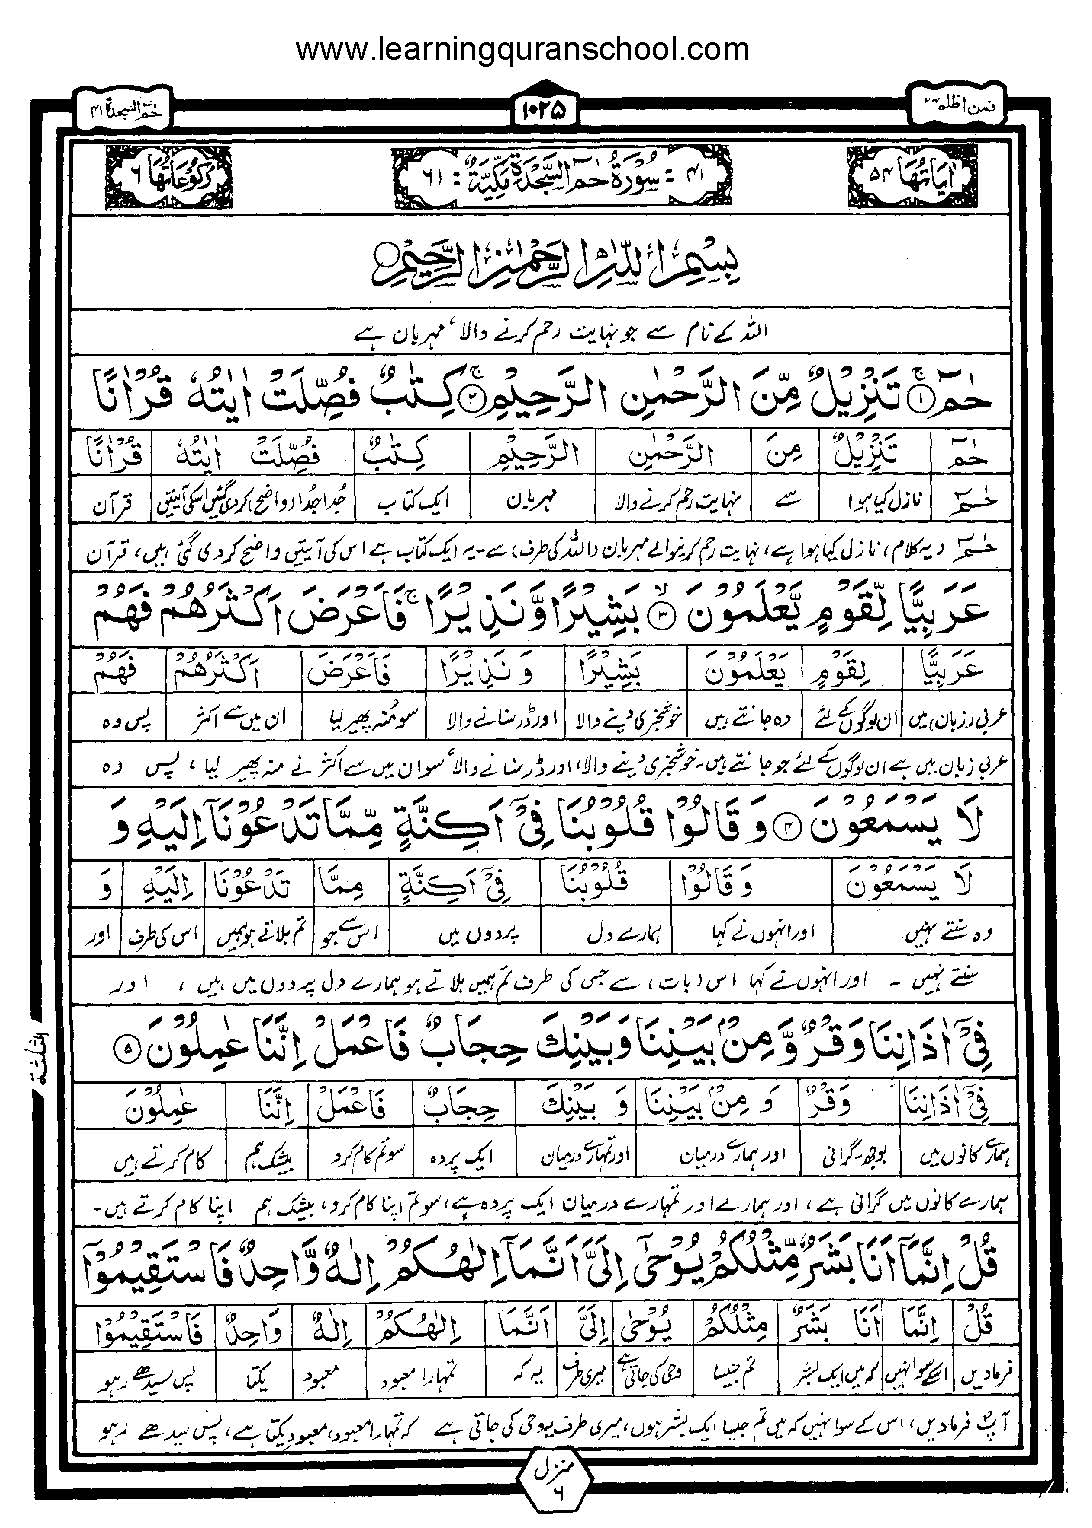 www.learningquranschool.com
فمن اظلم ۲۴
۱۰۲۵
حٰمٓ السجدۃ ۴۱
اٰیَاتُهَا ۵۴
۴۱ : سُوْرَةُ حٰمٓ السَّجْدَةِ مَكِّيَّةٌ : ۶۱
رُكُوْعَاتُهَا ۶
بِسْمِ اللّٰهِ الرَّحْمٰنِ الرَّحِيْمِ
اللہ کے نام سے جو نہایت رحم کرنے والا، مہربان ہے
حٰمٓ ۚ‏﴿۱﴾ تَنْزِيْلٌ مِّنَ الرَّحْمٰنِ الرَّحِيْمِ ۚ‏﴿۲﴾ كِتٰبٌ فُصِّلَتْ اٰيٰتُهٗ قُرْاٰنًا
حٰمٓ تَنْزِيْلٌ مِنَ الرَّحْمٰنِ الرَّحِيْمِ كِتٰبٌ فُصِّلَتْ اٰيٰتُهٗ قُرْاٰنًا
حٰمٓ نازل کیا ہوا سے نہایت رحم کرنے والا مہربان ایک کتاب جُدا جُدا (واضح) کردی گئیں اسکی آیتیں قرآن
حٰمٓ (یہ کلام) نازل کیا ہوا ہے، نہایت رحم کرنیوالے مہربان (اللہ کی طرف) سے۔ یہ ایک کتاب ہے اس کی آیتیں واضح کردی گئی ہیں، قرآن
عَرَبِيًّا لِّقَوْمٍ يَّعْلَمُوْنَ ۙ‏﴿۳﴾ بَشِيْرًا وَّنَذِيْرًا ۚ فَاَعْرَضَ اَكْثَرُهُمْ فَهُمْ
عَرَبِيًّا لِقَوْمٍ يَعْلَمُوْنَ بَشِيْرًا وَ نَذِيْرًا فَاَعْرَضَ اَكْثَرُهُمْ فَهُمْ
عربی (زبان) میں ان لوگوں کے لئے وہ جانتے ہیں خوشخبری دینے والا اور ڈر سنانے والا سو منہ پھیر لیا ان میں سے اکثر پس وہ
عربی زبان میں ہے ان لوگوں کے لئے جو جانتے ہیں۔ خوشخبری دینے والا، اور ڈر سنانے والا سو ان میں سے اکثر نے منہ پھیر لیا، پس وہ
لَا يَسْمَعُوْنَ ﴿۴﴾ وَ قَالُوْا قُلُوْبُنَا فِيْٓ اَكِنَّةٍ مِّمَّا تَدْعُوْنَآ اِلَيْهِ وَ
لَا يَسْمَعُوْنَ وَ قَالُوْا قُلُوْبُنَا فِيْٓ اَكِنَّةٍ مِمَّا تَدْعُوْنَا اِلَيْهِ وَ
وہ سنتے نہیں اور انہوں نے کہا ہمارے دل پردوں میں اس سے جو تم بلاتے ہو ہمیں اس کی طرف اور
سنتے نہیں ۔ اور انہوں نے کہا اس (بات) سے جس کی طرف تم ہمیں بلاتے ہو ہمارے دل پردوں میں ہیں ، اور
فِيْٓ اٰذَانِنَا وَقْرٌ وَّ مِنْۢ بَيْنِنَا وَ بَيْنِكَ حِجَابٌ فَاعْمَلْ اِنَّنَا عٰمِلُوْنَ ﴿۵﴾
فِيْٓ اٰذَانِنَا وَقْرٌ وَ مِنْۢ بَيْنِنَا وَ بَيْنِكَ حِجَابٌ فَاعْمَلْ اِنَّنَا عٰمِلُوْنَ
ہمارے کانوں میں بوجھ۔ گرانی اور ہمارے درمیان اور تمہارے درمیان ایک پردہ سو تم کام کرو بیشک ہم کام کرتے ہیں
ہمارے کانوں میں گرانی ہے، اور ہمارے اور تمہارے درمیان ایک پردہ ہے، سو تم اپنا کام کرو، بیشک ہم اپنا کام کرتے ہیں۔
قُلْ اِنَّمَآ اَنَا بَشَرٌ مِّثْلُكُمْ يُوْحٰٓى اِلَيَّ اَنَّمَآ اِلٰهُكُمْ اِلٰهٌ وَّاحِدٌ فَاسْتَقِيْمُوْٓا
قُلْ اِنَّمَا اَنَا بَشَرٌ مِثْلُكُمْ يُوْحٰى اِلَيَّ اَنَّمَا اِلٰهُكُمْ اِلٰهٌ وَّاحِدٌ فَاسْتَقِيْمُوْا
فرمادیں اسکے سوا نہیں کہ میں ایک بشر تم جیسا وحی کی جاتی ہے میری طرف یہ کہ تمہارا معبود معبود یکتا پس سیدھے رہو
آپؐ فرمادیں، اس کے سوا نہیں کہ میں تم جیسا ایک بشر ہوں، میری طرف وحی کی جاتی ہے کہ تمہارا معبود، معبود یکتا ہے، پس سیدھے رہو
منزل ۶